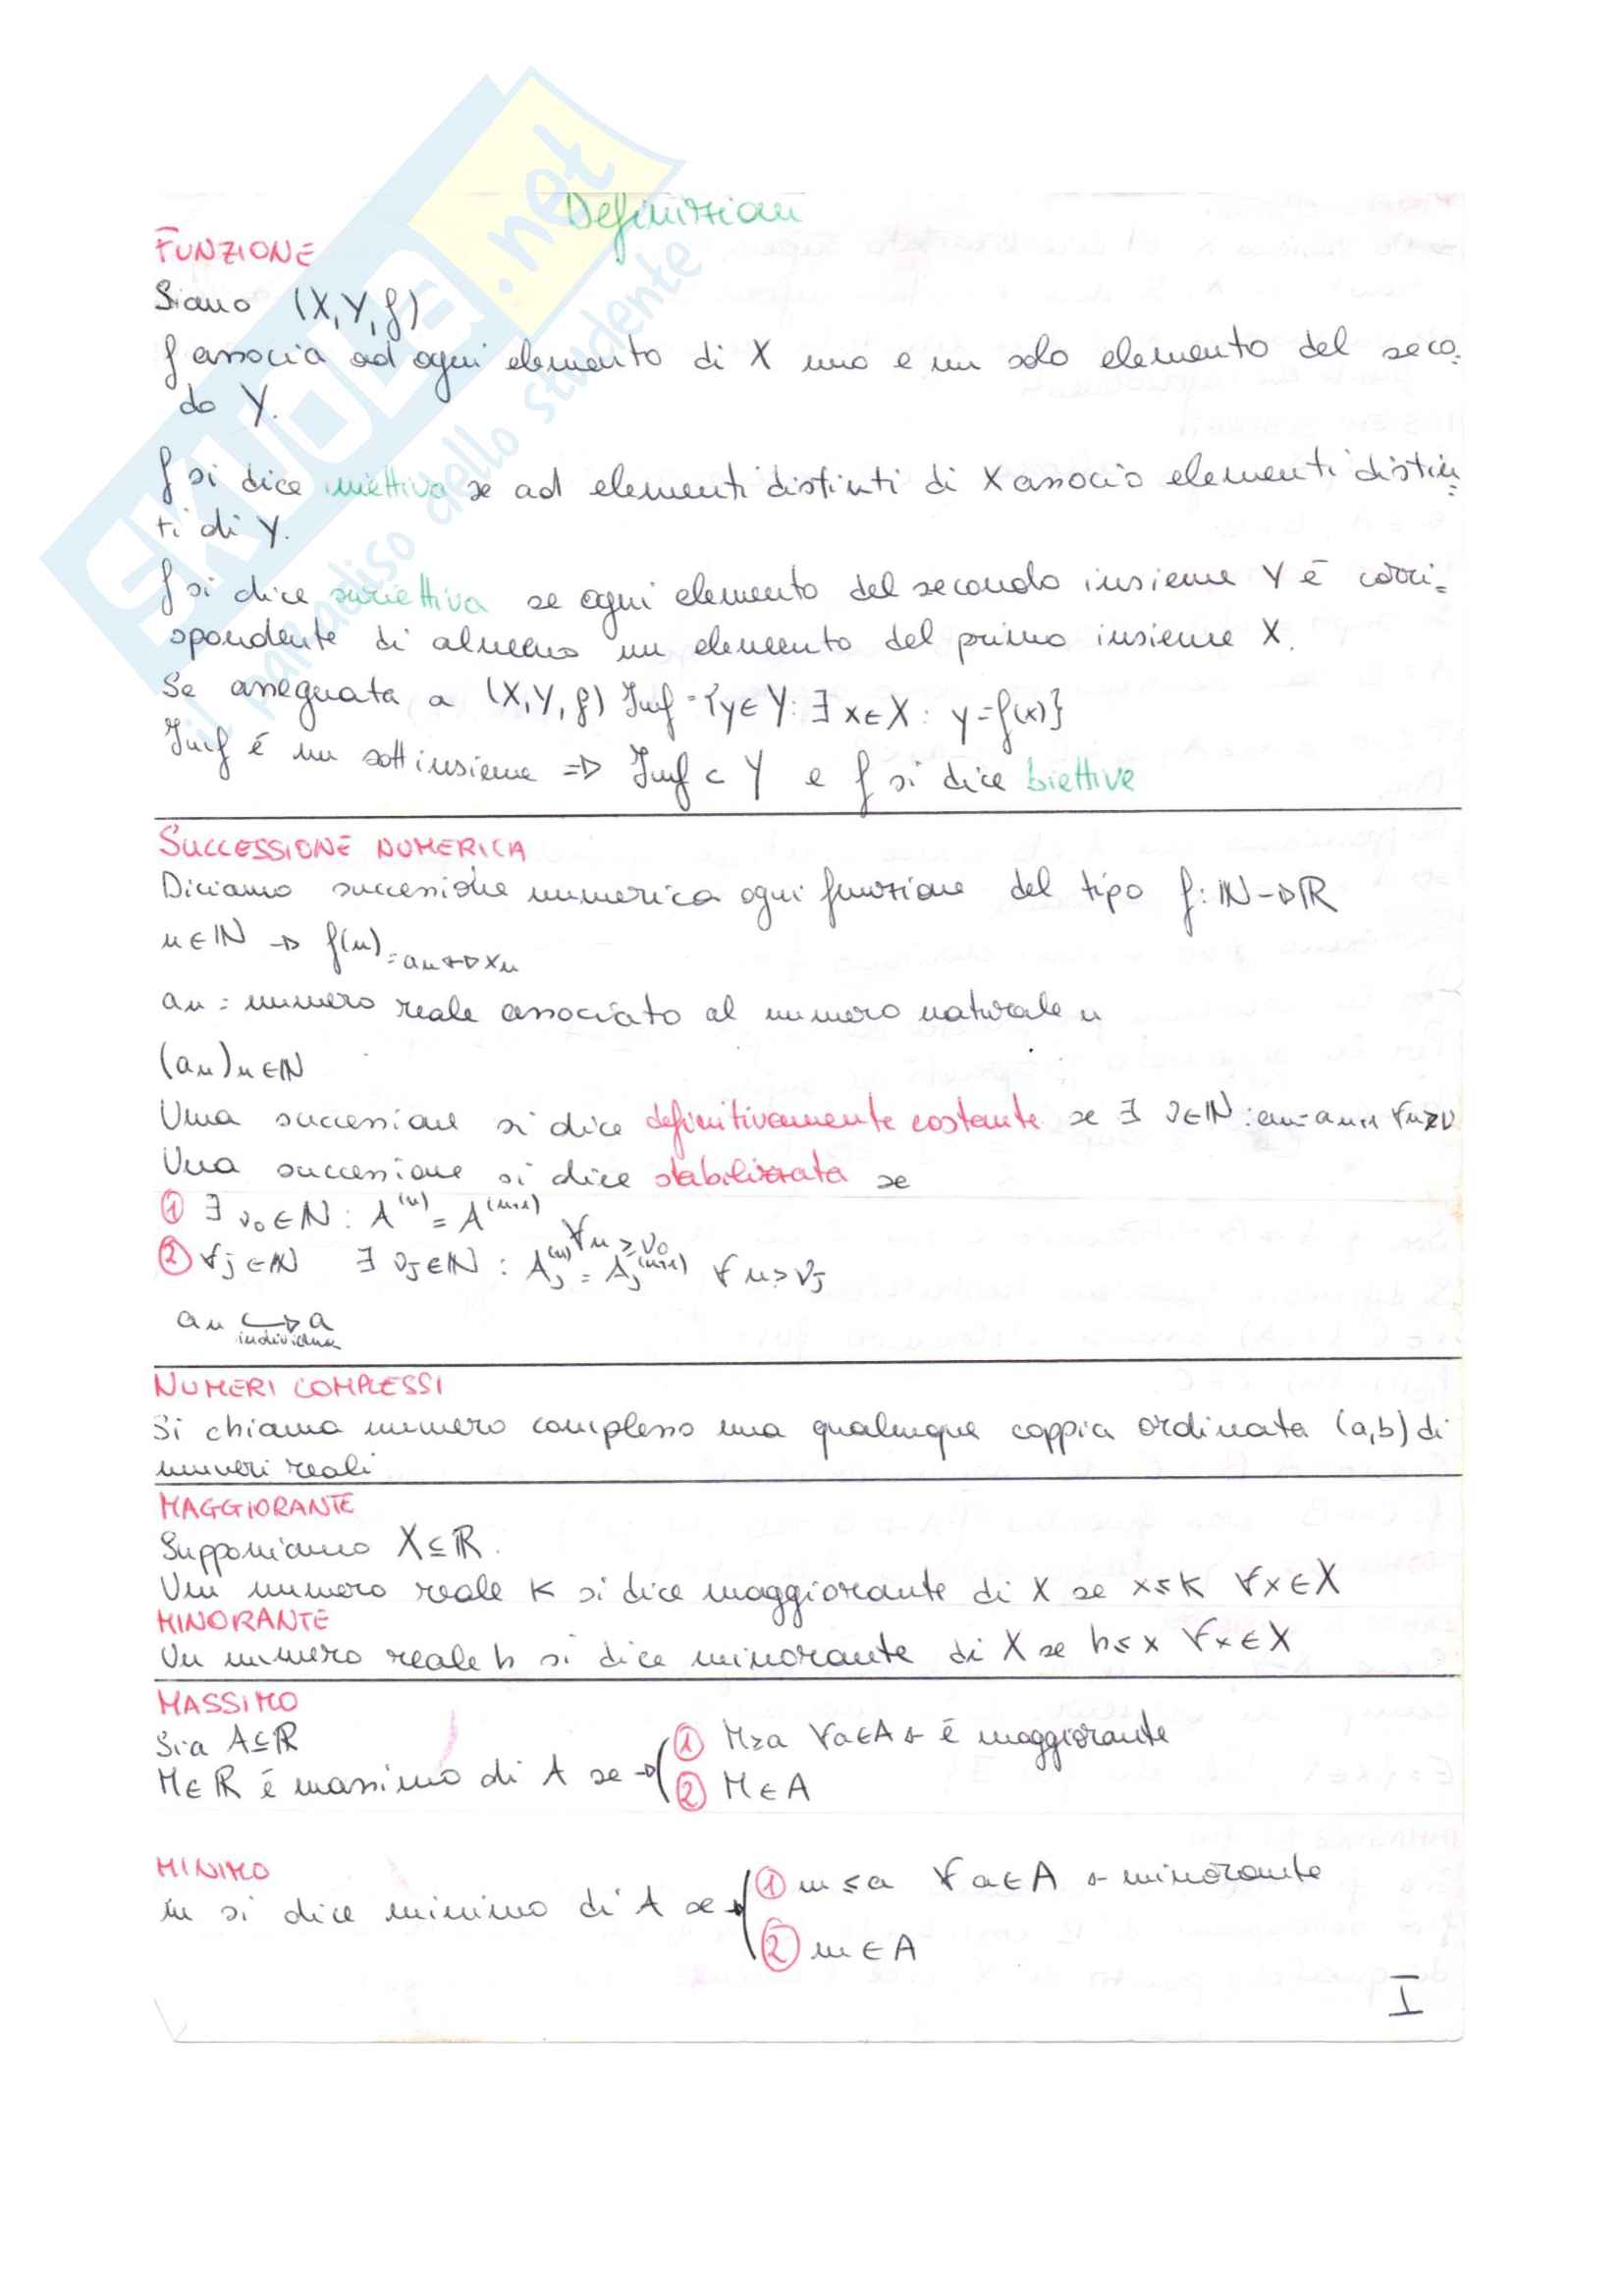 SKUOLA.net
il paradiso dello studente
Definizioni
FUNZIONE
Siano (X,Y,f)
f associa ad ogni elemento di X uno e un solo elemento del seco-
do Y.
f si dice iniettiva se ad elementi distinti di X associo elementi distin=
ti di Y.
f si dice suriettiva se ogni elemento del secondo insieme Y é corri=
spondente di almeno un elemento del primo insieme X.
Se assegnata a (X,Y,f) Imf={y∈Y:∃x∈X: y=f(x)}
Imf é un sottinsieme => Imf⊂Y e f si dice biettiva
SUCCESSIONE NUMERICA
Diciamo successione numerica ogni funzione del tipo f:ℕ→ℝ
n∈ℕ → f(n)=an↔xn
an = numero reale associato al numero naturale n
(an)n∈ℕ
Una successione si dice definitivamente costante se ∃ ν∈ℕ: an=an+1 ∀n≥ν
Una successione si dice stabilizzata se
1 ∃ ν₀∈ℕ: A⁽ⁿ⁾=A⁽ⁿ⁺¹⁾ ∀n≥ν₀
2 ∀j∈ℕ ∃ νj∈ℕ: Aj⁽ⁿ⁾=Aj⁽ⁿ⁺¹⁾ ∀n≥νj
an ↪ a
individua
NUMERI COMPLESSI
Si chiama numero complesso una qualunque coppia ordinata (a,b) di
numeri reali
MAGGIORANTE
Supponiamo X⊆ℝ.
Un numero reale K si dice maggiorante di X se x≤K ∀x∈X
MINORANTE
Un numero reale h si dice minorante di X se h≤x ∀x∈X
MASSIMO
Sia A⊆ℝ
M∈ℝ é massimo di A se → 1 M≥a ∀a∈A ← é maggiorante
2 M∈A
MINIMO
m si dice minimo di A se → 1 m≤a ∀a∈A ← minorante
2 m∈A
I